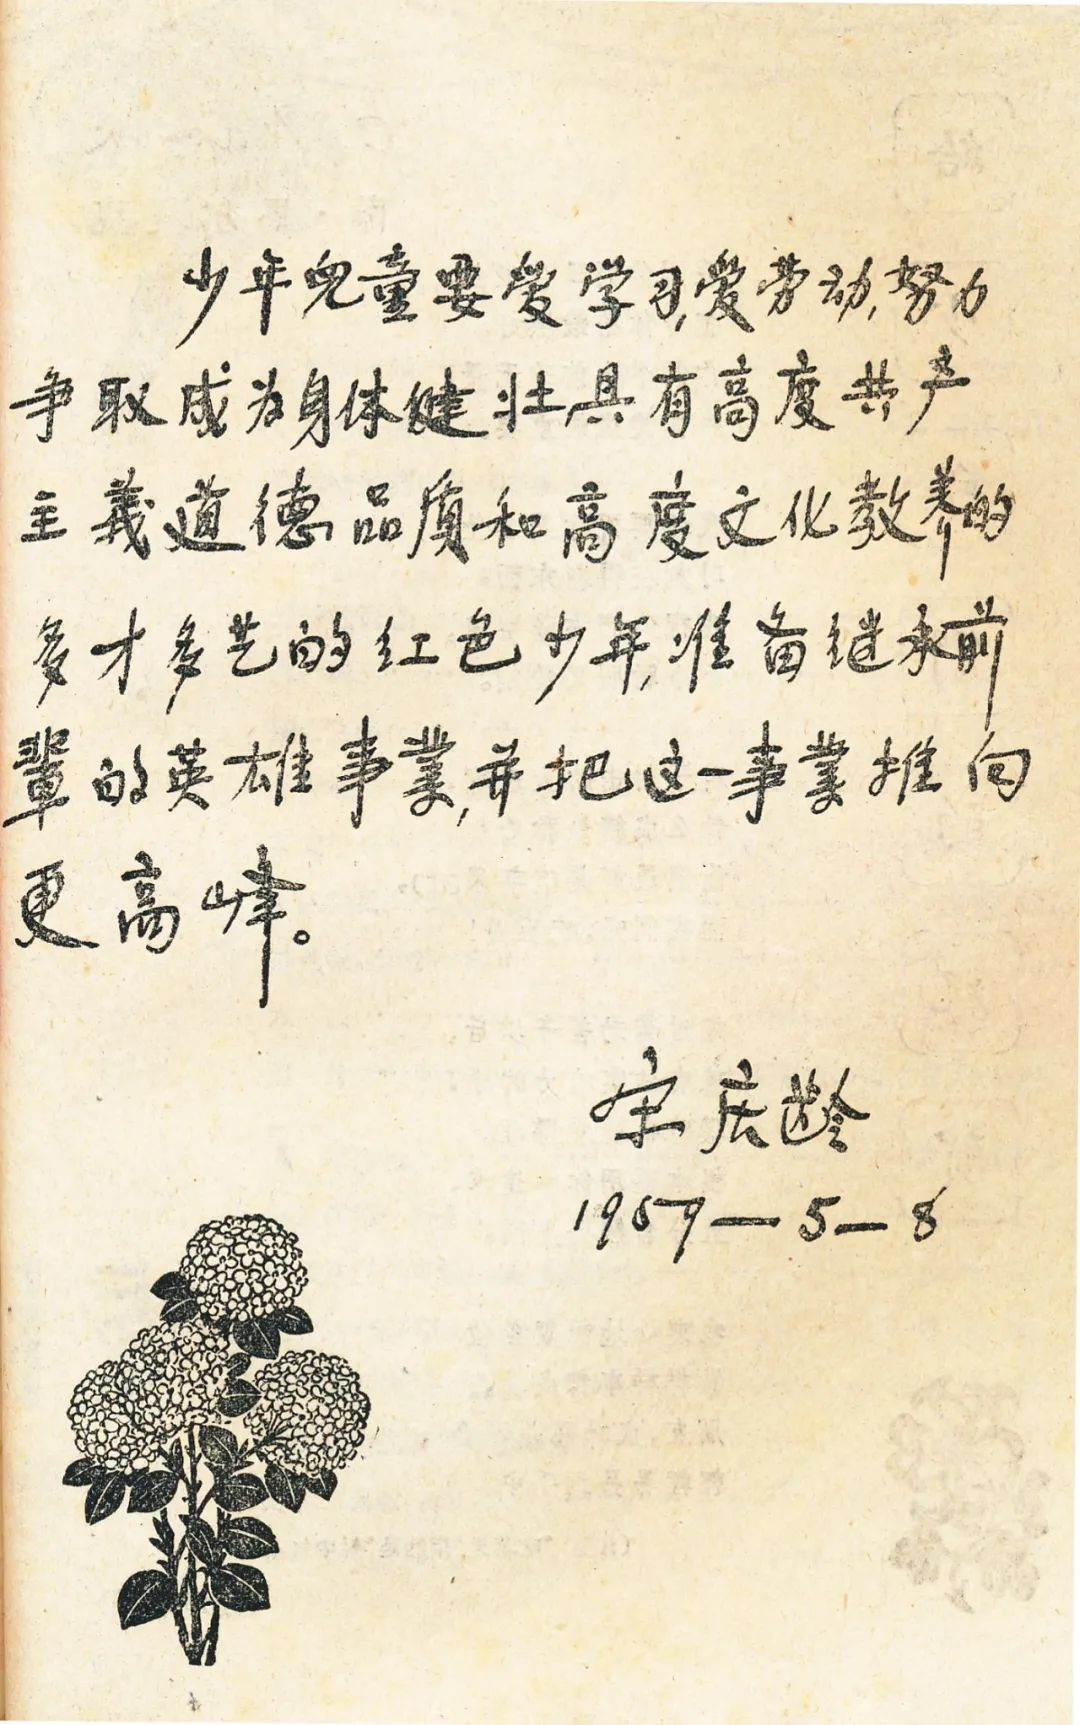 少年兒童要愛学习,爱劳动,努力
争取成为身体健壮,具有高度共产
主義道德品质和高度文化教养的
多才多艺的红色少年,准备继承前
輩的英雄事業,并把这一事業推向
更高峰。
宋庆龄
1959—5—8